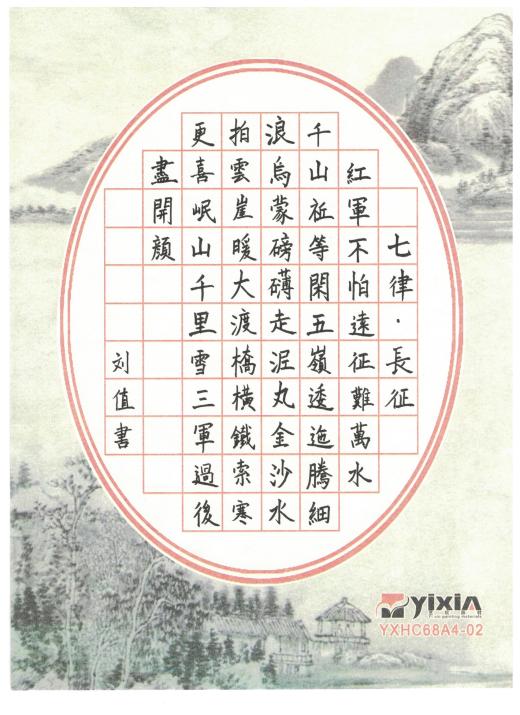 七律·長征
紅軍不怕遠征難萬水
千山祗等閑五嶺逶迤騰細
浪烏蒙磅礴走泥丸金沙水
拍雲崖暖大渡橋橫鐵索寒
更喜岷山千里雪三軍過後
盡開顔
刘值書
YIXIA
YXHC68A4-02